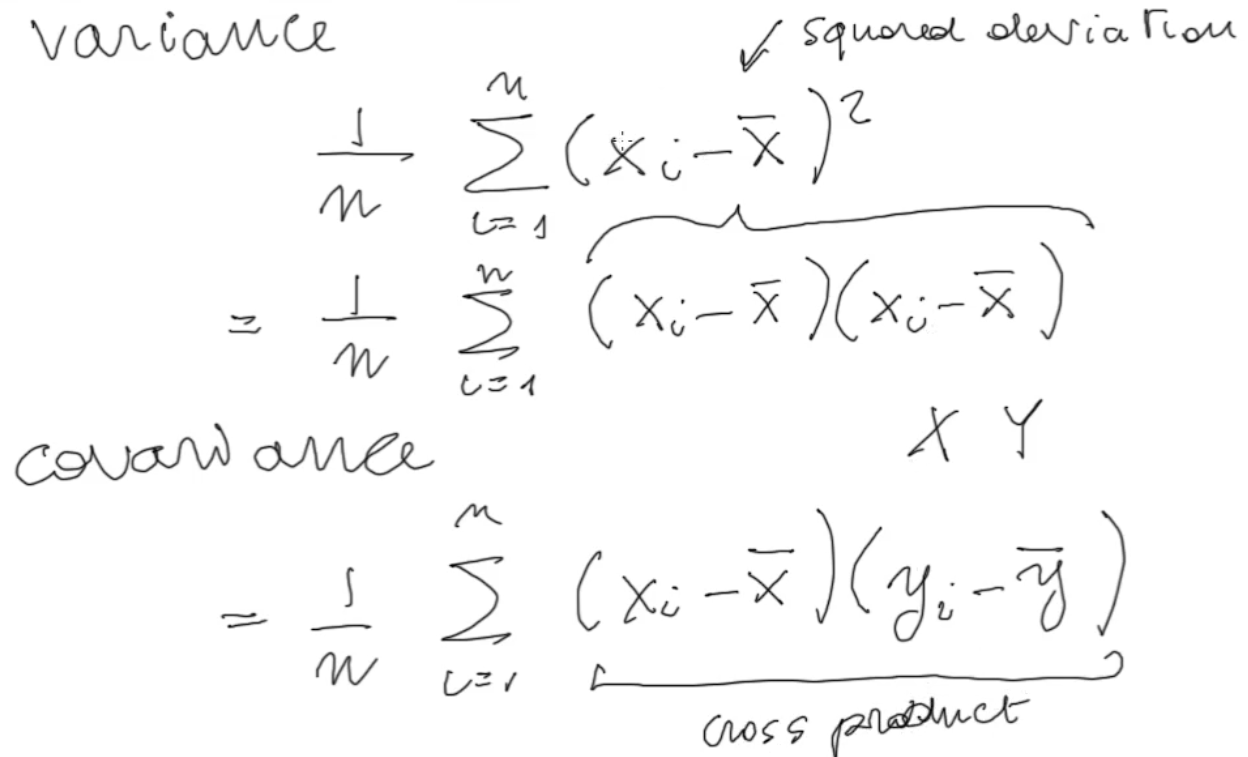 variance
✓ squared deviation
1/n ∑_{i=1}^{n} (x_i − x̄)²
= 1/n ∑_{i=1}^{n} (x_i − x̄)(x_i − x̄)
X Y
covariance
= 1/n ∑_{i=1}^{n} (x_i − x̄)(y_i − ȳ)
cross product